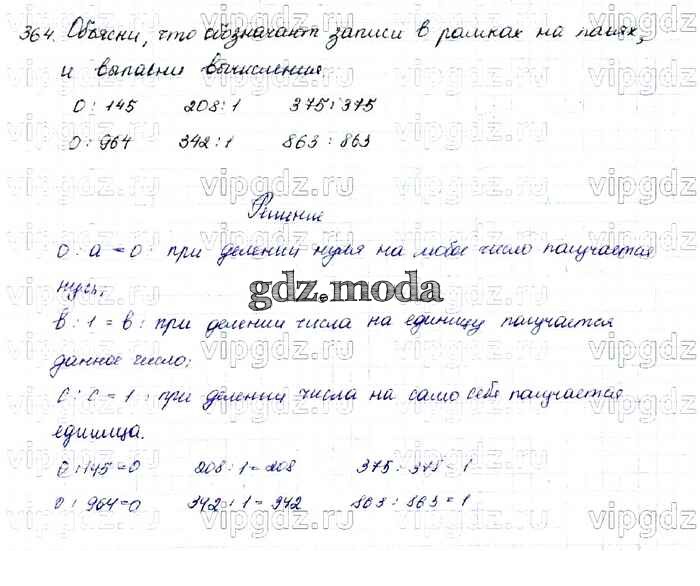 364. Объясни, что обозначают записи в рамках на полях,
и выполни вычисления.
0 : 145 208 : 1 375 : 375
0 : 964 342 : 1 863 : 863
Решение
0 : a = 0 : при делении нуля на любое число получается
нуль;
gdz.moda
b : 1 = b : при делении числа на единицу получается
данное число;
c : c = 1 : при делении числа на само себя получается
единица.
0 : 145 = 0 208 : 1 = 208 375 : 375 = 1
0 : 964 = 0 342 : 1 = 342 863 : 863 = 1
vipgdz.ru